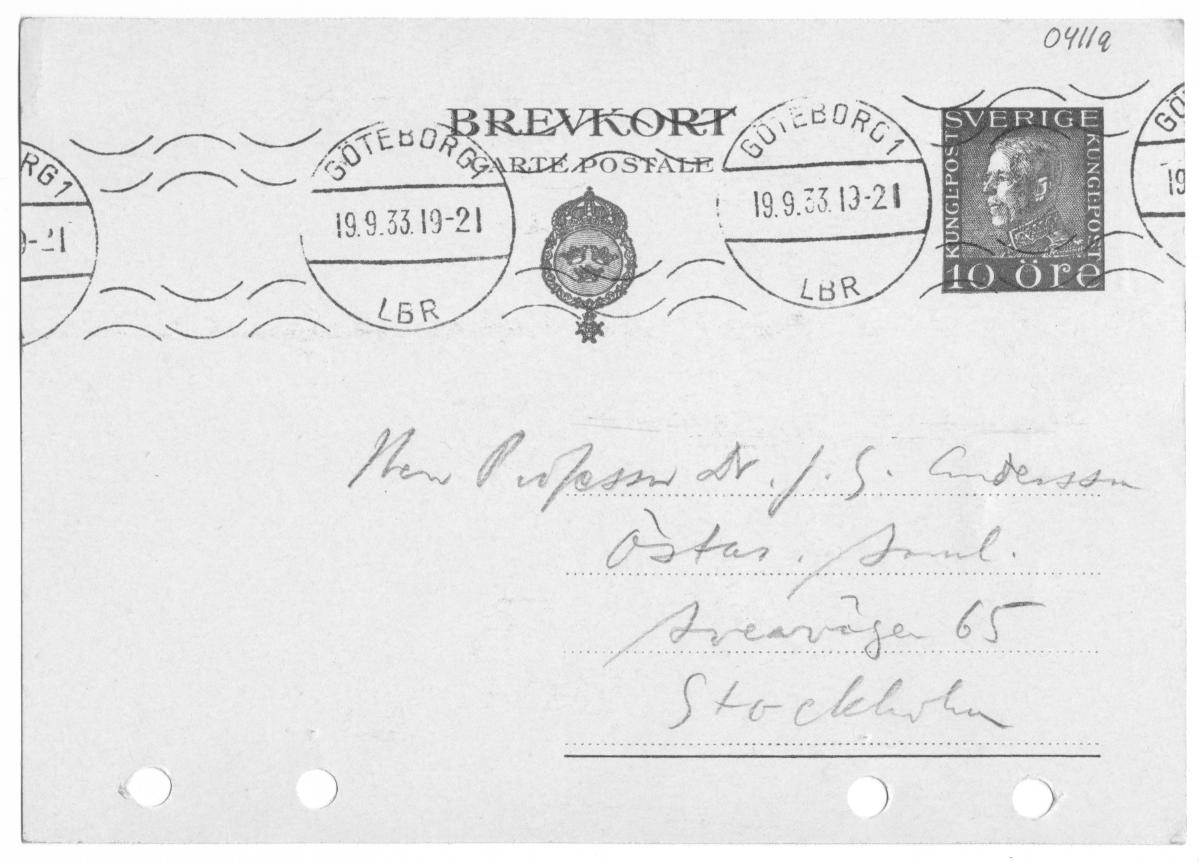 0411a
BREVKORT
CARTE POSTALE
RG 1
9-21
GÖTEBORG 1
19.9.33.19-21
LBR
GÖTEBORG 1
19.9.33.19-21
LBR
SVERIGE
KUNGL: POST
KUNGL: POST
10 öre
GÖ
19
Herr Professor Dr. J. G. Andersson
Östas. Saml.
Sveavägen 65
Stockholm